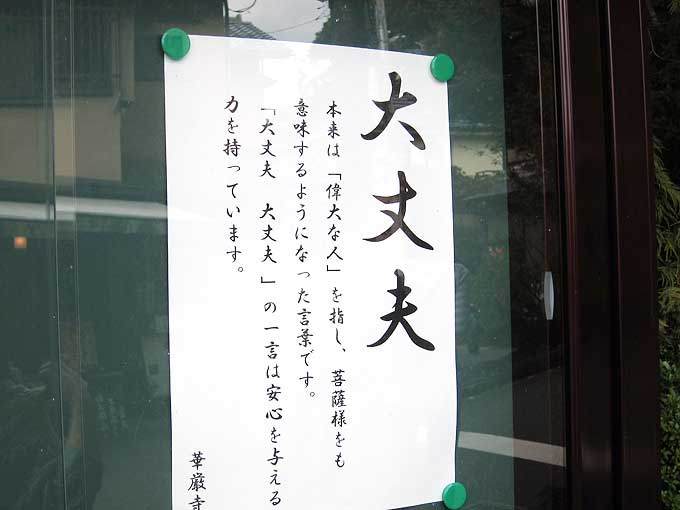 大丈夫
本来は「偉大な人」を指し、菩薩様をも
意味するようになった言葉です。
「大丈夫　大丈夫」の一言は安心を与える
力を持っています。
華厳寺